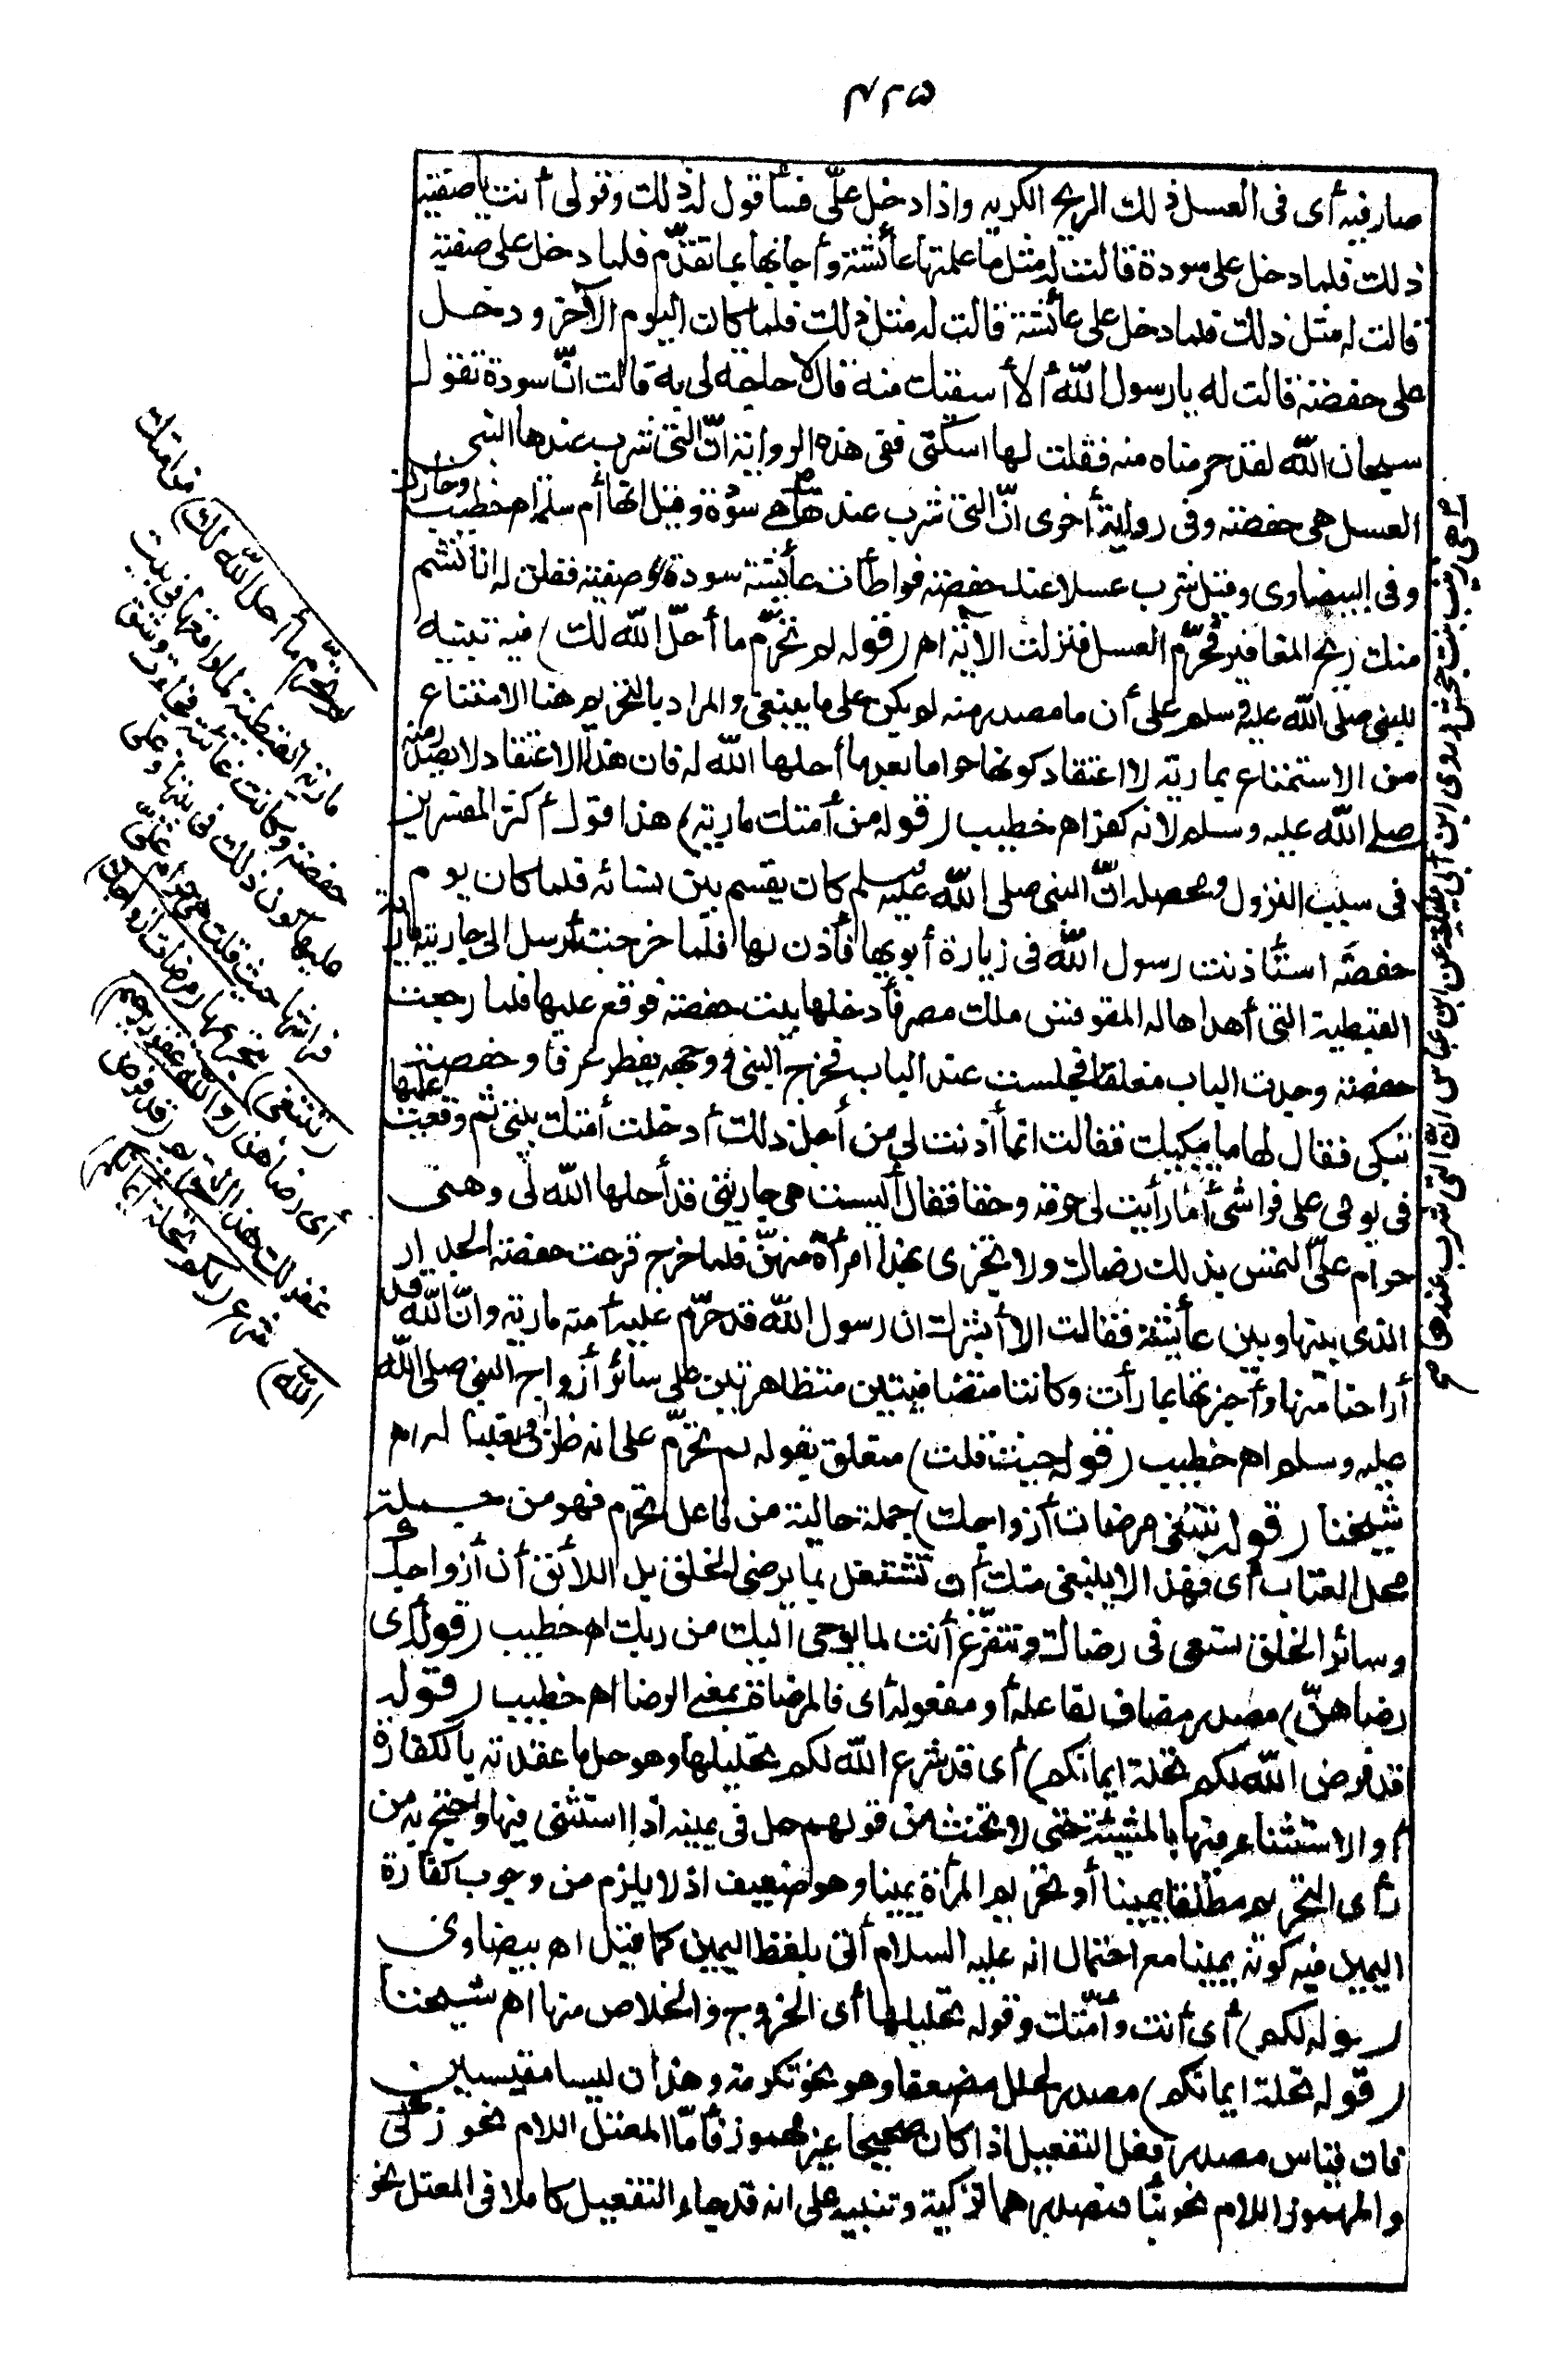 ٤٢٥
صار فيه أى فى العسل ذلك الريح الكريه واذا دخل علىّ فسأقول له ذلك وقولى أنت يا صفية
ذلك فلما دخل على سودة قالت له مثل ما علمتها عائشة وأجابها بما تقدّم فلما دخل على صفية
قالت له مثل ذلك فلما دخل على عائشة قالت له مثل ذلك فلما كان اليوم الآخر ودخل
على حفصة قالت له يا رسول الله ألا أسقيك منه قال لا حاجة لى به قالت انّ سودة تقول
سبحان الله لقد حرمناه منه فقلت لها اسكتى ففى هذه الرواية انّ التى شرب عندها النبى
العسل هى حفصة وفى رواية أخرى انّ التى شرب عندها هى سودة وقيل انها أم سلمة اه خطيب
وفى البيضاوى وقيل شرب عسلا عند حفصة فواطأت عائشة سودة وصفية فقلن له انا نشم
منك ريح المغافير فحرّم العسل فنزلت الآية اه (قوله لم تحرّم ما أحلّ الله لك) فيه تنبيه
للنبى صلى الله عليه وسلم على أن ما صدر منه لم يكن على ما ينبغى والمراد بالتحريم هنا الامتناع
من الاستمتاع بمارية لا اعتقاد كونها حراما بعد ما أحلها الله له فان هذا الاعتقاد لا يصدر منه
صلى الله عليه وسلم لانه كفر اه خطيب (قوله من أمتك مارية) هذا قول أكثر المفسرين
فى سبب النزول ومحصله انّ النبى صلى الله عليه وسلم كان يقسم بين نسائه فلما كان يوم
حفصة استأذنت رسول الله فى زيارة أبويها فأذن لها فلما خرجت أرسل الى جاريته مارية
القبطية التى أهداها له المقوقس ملك مصر فأدخلها بيت حفصة فوقع عليها فلما رجعت
حفصة وجدت الباب مغلقا فجلست عند الباب فخرج النبى ووجهه يقطر عرقا وحفصة
تبكى فقال لها ما يبكيك فقالت انما أذنت لى من أجل ذلك أدخلت أمتك بيتى ثم وقعت عليها
فى يومى على فراشى أما رأيت لى حرمة وحقا فقال أليست هى جاريتى قد أحلها الله لى وهى
حرام علىّ ألتمس بذلك رضاك ولا تخبرى بهذا امرأة منهنّ فلما خرج قرعت حفصة الجدار
الذى بينها وبين عائشة فقالت ألا أبشرك ان رسول الله قد حرّم عليه أمته مارية وانّ الله قد
أراحنا منها وأخبرتها بما رأت وكانتا متصافيتين متظاهرتين على سائر أزواج النبى صلى الله
عليه وسلم اه خطيب (قوله حيث قلت) متعلق بقوله لم تحرّم على انه ظرف له اه
شيخنا (قوله تبتغى مرضات أزواجك) جملة حالية من فاعل تحرم فهو من جملة
محل العتاب أى فهذا لا ينبغى منك أن تشتغل بما يرضى الخلق بل اللائق أن أزواجك
وسائر الخلق تسعى فى رضاك وتتفرّغ أنت لما يوحى اليك من ربك اه خطيب (قوله أى
رضاهنّ) مصدر مضاف لفاعله أو مفعوله أى فالمرضاة بمعنى الرضا اه خطيب (قوله
قد فرض الله لكم تحلة ايمانكم) أى قد شرع الله لكم تحليلها وهو حل ما عقدته بالكفارة
أو الاستثناء فيها بالمشيئة حتى لا تحنث من قولهم حل فى يمينه اذا استثنى فيها واحتج به من
رأى التحريم مطلقا يمينا أو تحريم المرأة يمينا وهو ضعيف اذ لا يلزم من وجوب كفارة
اليمين فيه كونه يمينا مع احتمال انه عليه السلام أتى بلفظ اليمين كما قيل اه بيضاوى
(قوله لكم) أى أنت وأمّتك وقوله تحليلها أى الخروج والخلاص منها اه شيخنا
(قوله تحلة ايمانكم) مصدر لحلل مضعفا وهو نحو تكرمة وهذان ليسا مقيسين
فان قياس مصدر فعل التفعيل اذا كان صحيحا غير مهموز فأمّا المعتل اللام نحو زكى
والمهموز اللام نحو نبأ فمصدرهما تزكية وتنبية على انه قد جاء التفعيل كاملا فى المعتل نحو
زينب بنت جحش روى ابن أبى مليكة عن ابن عباس انّ التى شرب عندها
لم تحرّم ما أحل الله لك) من أمتك
مارية القبطية لما واقعها فى بيت
حفصة وكانت غائبة فجاءت وشق
عليها كون ذلك فى بيتها وعلى
فراشها حيث قلت هى حرام علىّ
(تبتغى) بتحريمها (مرضات أزواجك)
أى رضاهنّ (والله غفور رحيم)
غفر لك هذا التحريم (قد فرض
الله) شرع (لكم تحلة ايمانكم)